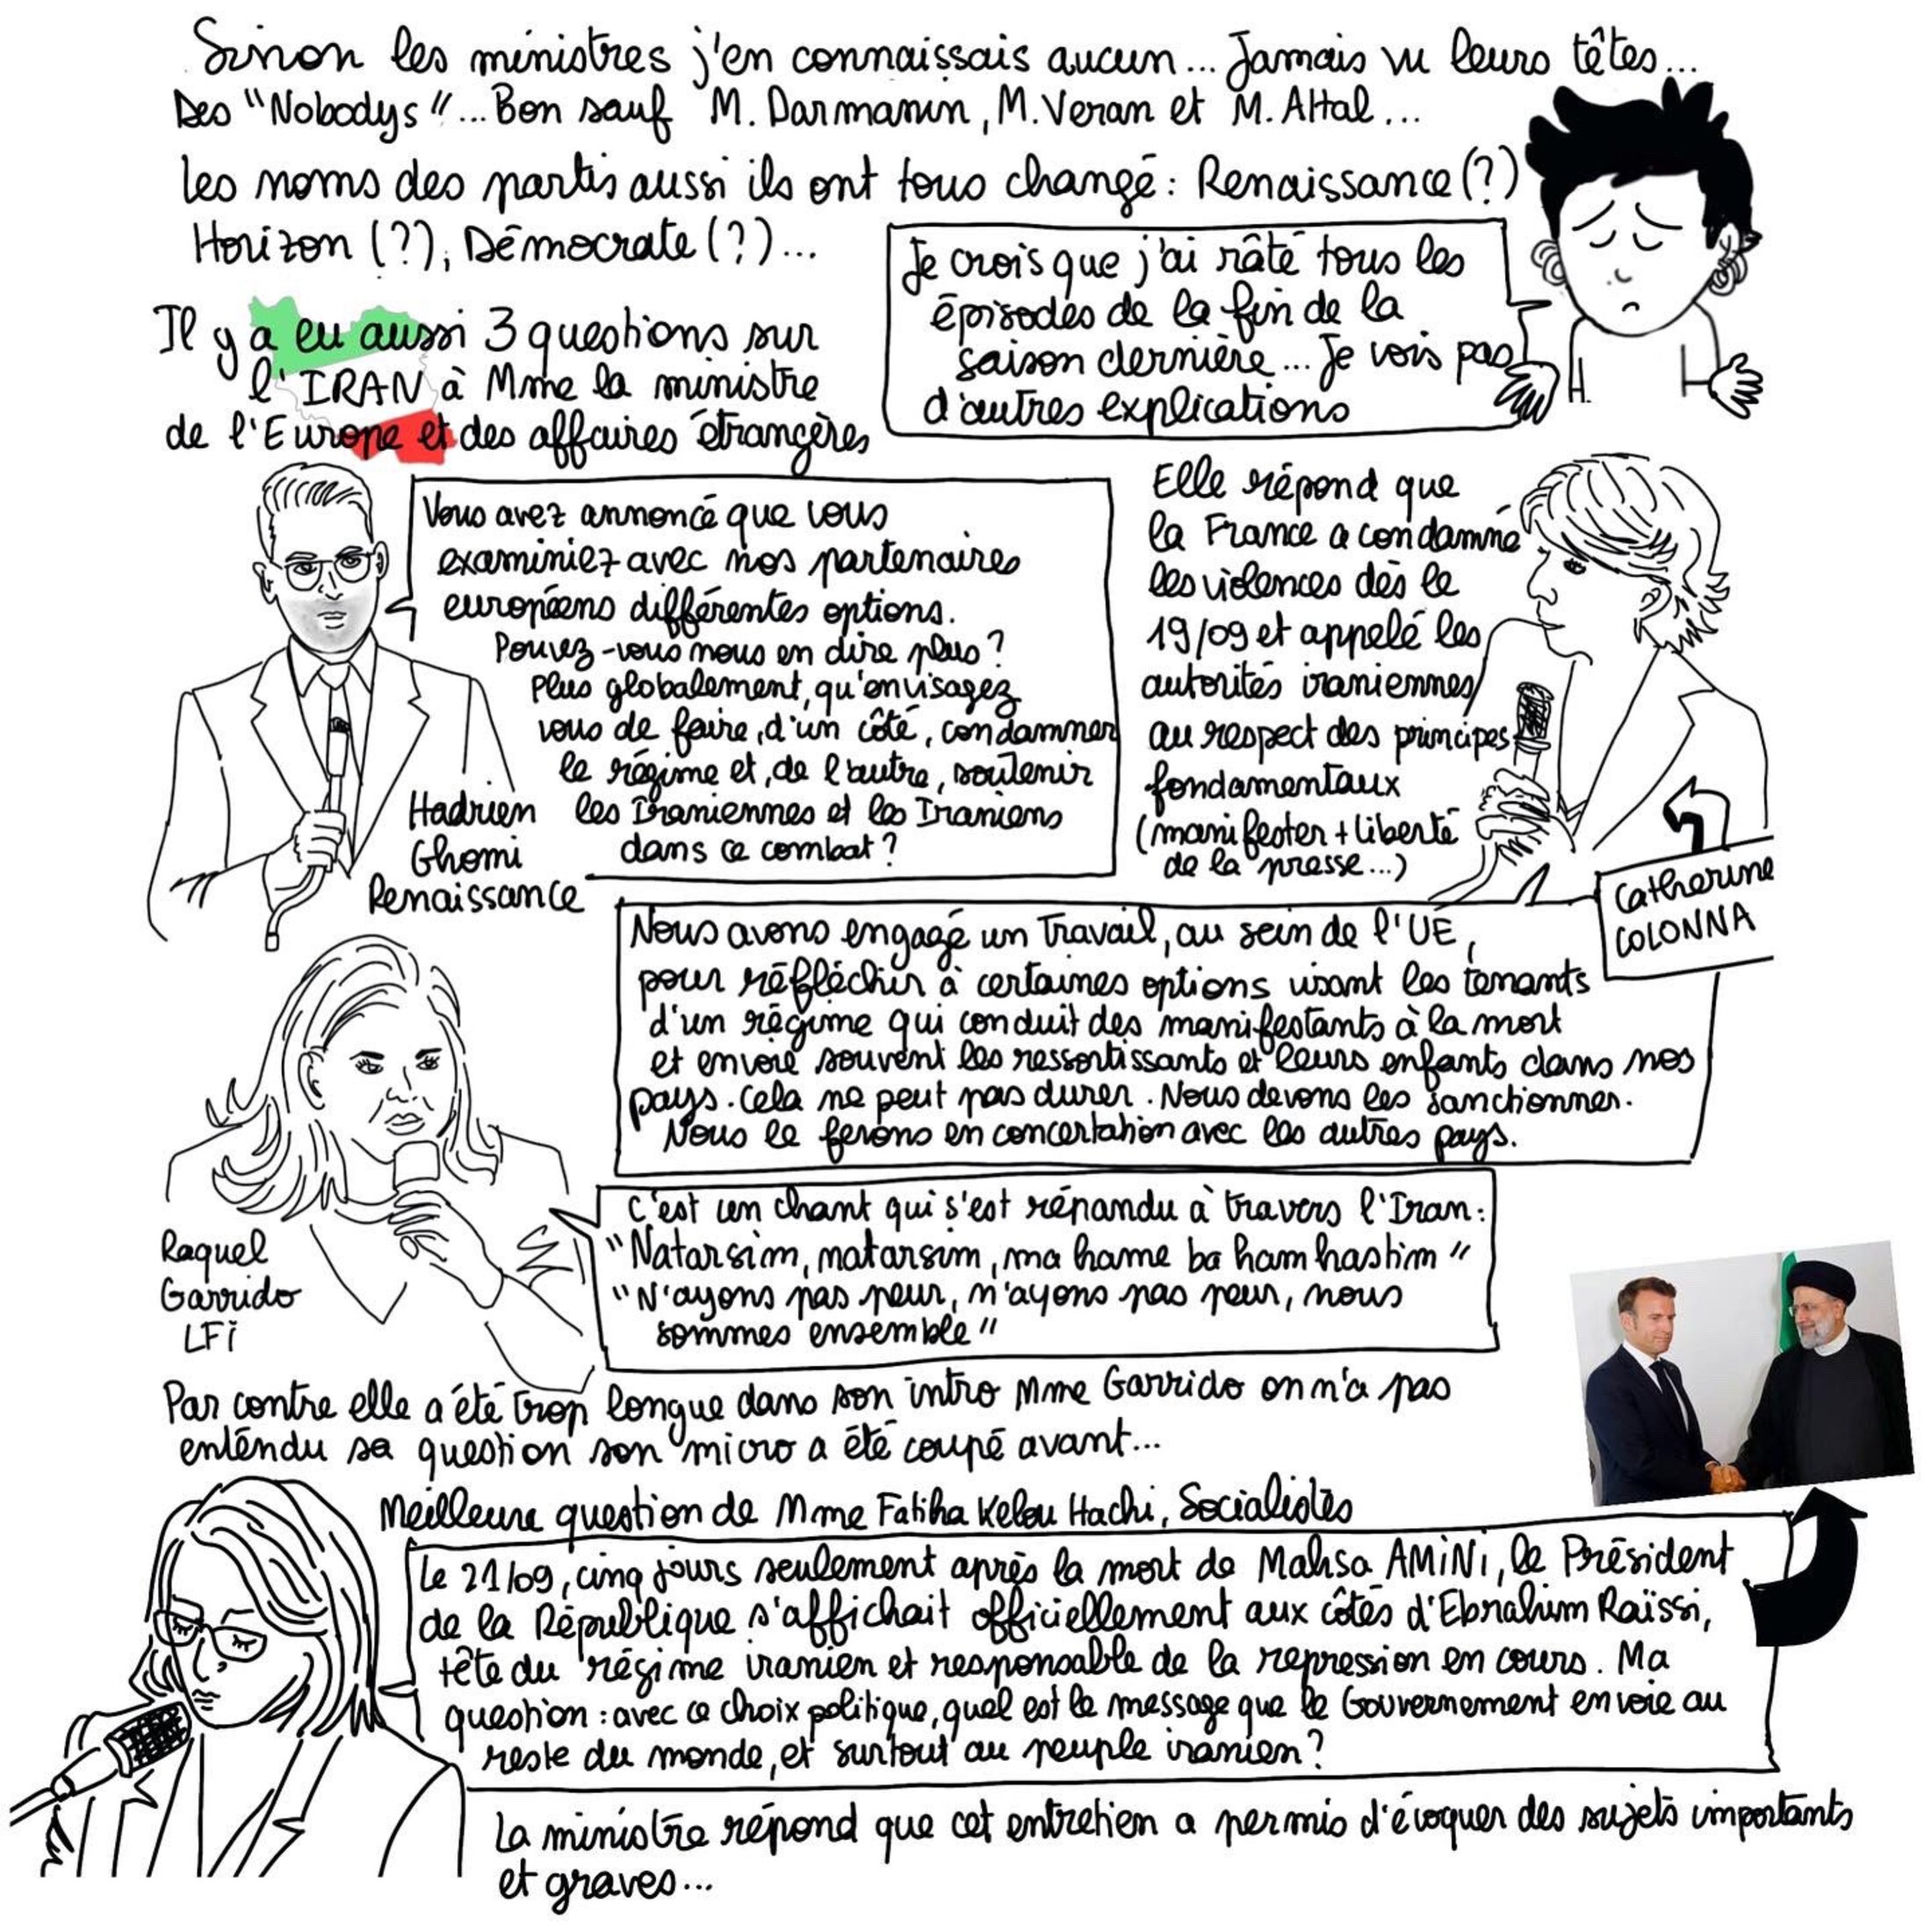 Sinon les ministres j'en connaissais aucun... Jamais vu leurs têtes...
Des "Nobodys"... Bon sauf M. Darmanin, M. Veran et M. Attal...
les noms des partis aussi ils ont tous changé : Renaissance (?)
Horizon (??), Démocrate (?)...
Je crois que j'ai râté tous les
épisodes de la fin de la
saison dernière... Je vois pas
d'autres explications
Il y a eu aussi 3 questions sur
l'IRAN à Mme la ministre
de l'Europe et des affaires étrangères
Vous avez annoncé que vous
examiniez avec nos partenaires
européens différentes options.
Pouvez-vous nous en dire plus ?
Plus globalement, qu'envisagez
vous de faire, d'un côté, condamner
le régime et, de l'autre, soutenir
les Iraniennes et les Iraniens
dans ce combat ?
Hadrien
Ghomi
Renaissance
Elle répond que
la France a condamné
les violences dès le
19/09 et appelé les
autorités iraniennes
au respect des principes
fondamentaux
(manifester + liberté
de la presse...)
Catherine
COLONNA
Nous avons engagé un travail, au sein de l'UE,
pour réfléchir à certaines options visant les tenants
d'un régime qui conduit des manifestants à la mort
et envoie souvent les ressortissants et leurs enfants dans nos
pays. Cela ne peut pas durer. Nous devons les sanctionner.
Nous le ferons en concertation avec les autres pays.
Raquel
Garrido
LFi
C'est un chant qui s'est répandu à travers l'Iran :
"Natarsim, natarsim, ma hame ba ham hastim"
"N'ayons pas peur, n'ayons pas peur, nous
sommes ensemble"
Par contre elle a été trop longue dans son intro Mme Garrido on n'a pas
entendu sa question son micro a été coupé avant...
Meilleure question de Mme Fatiha Kelou Hachi, Socialistes
Le 21/09, cinq jours seulement après la mort de Mahsa AMiNi, le Président
de la République s'affichait officiellement aux côtés d'Ebrahim Raïssi,
tête du régime iranien et responsable de la repression en cours. Ma
question : avec ce choix politique, quel est le message que le Gouvernement envoie au
reste du monde, et surtout au peuple iranien ?
La ministre répond que cet entretien a permis d'évoquer des sujets importants
et graves...